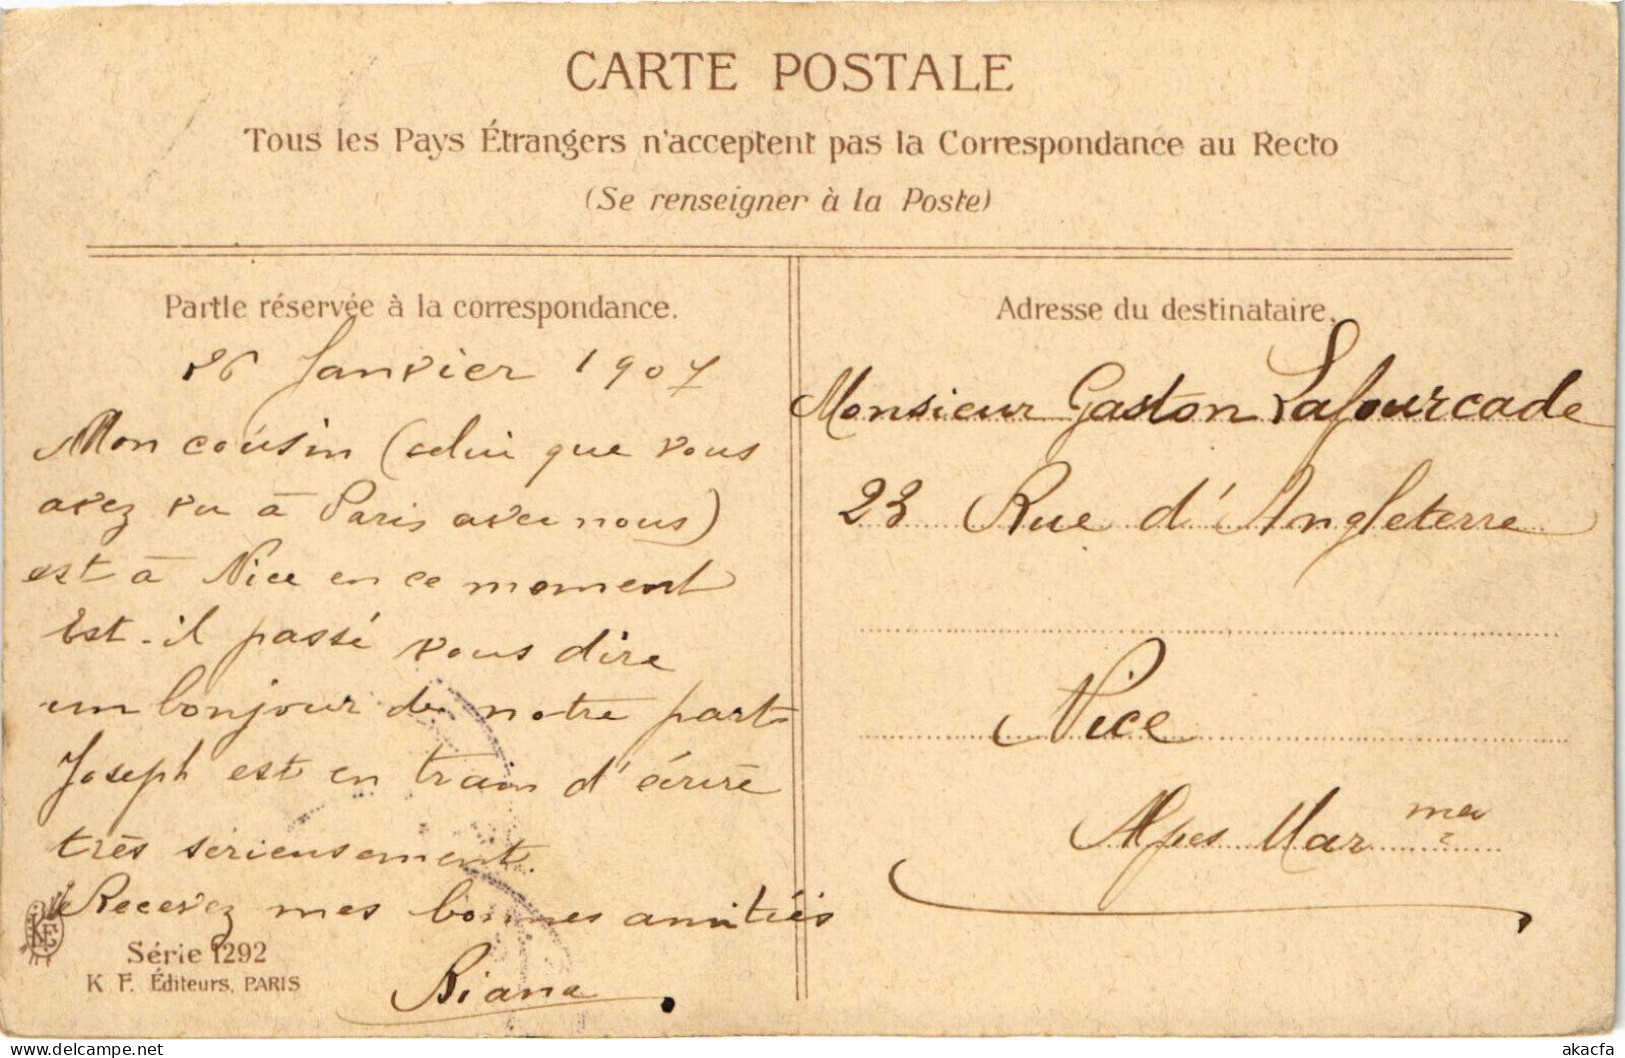 CARTE POSTALE
Tous les Pays Étrangers n'acceptent pas la Correspondance au Recto
(Se renseigner à la Poste)
Partie réservée à la correspondance.
26 Janvier 1907
Mon cousin (celui que vous
avez vu à Paris avec nous)
est à Nice en ce moment
Est-il passé vous dire
un bonjour de notre part
Joseph est en train d'écrire
très sérieusement.
Recevez mes bonnes amitiés
Série 1292
K F. Éditeurs, PARIS
Adresse du destinataire.
Monsieur Gaston Lafourcade
23 Rue d'Angleterre
Nice
Alpes Mar mes
akacfa